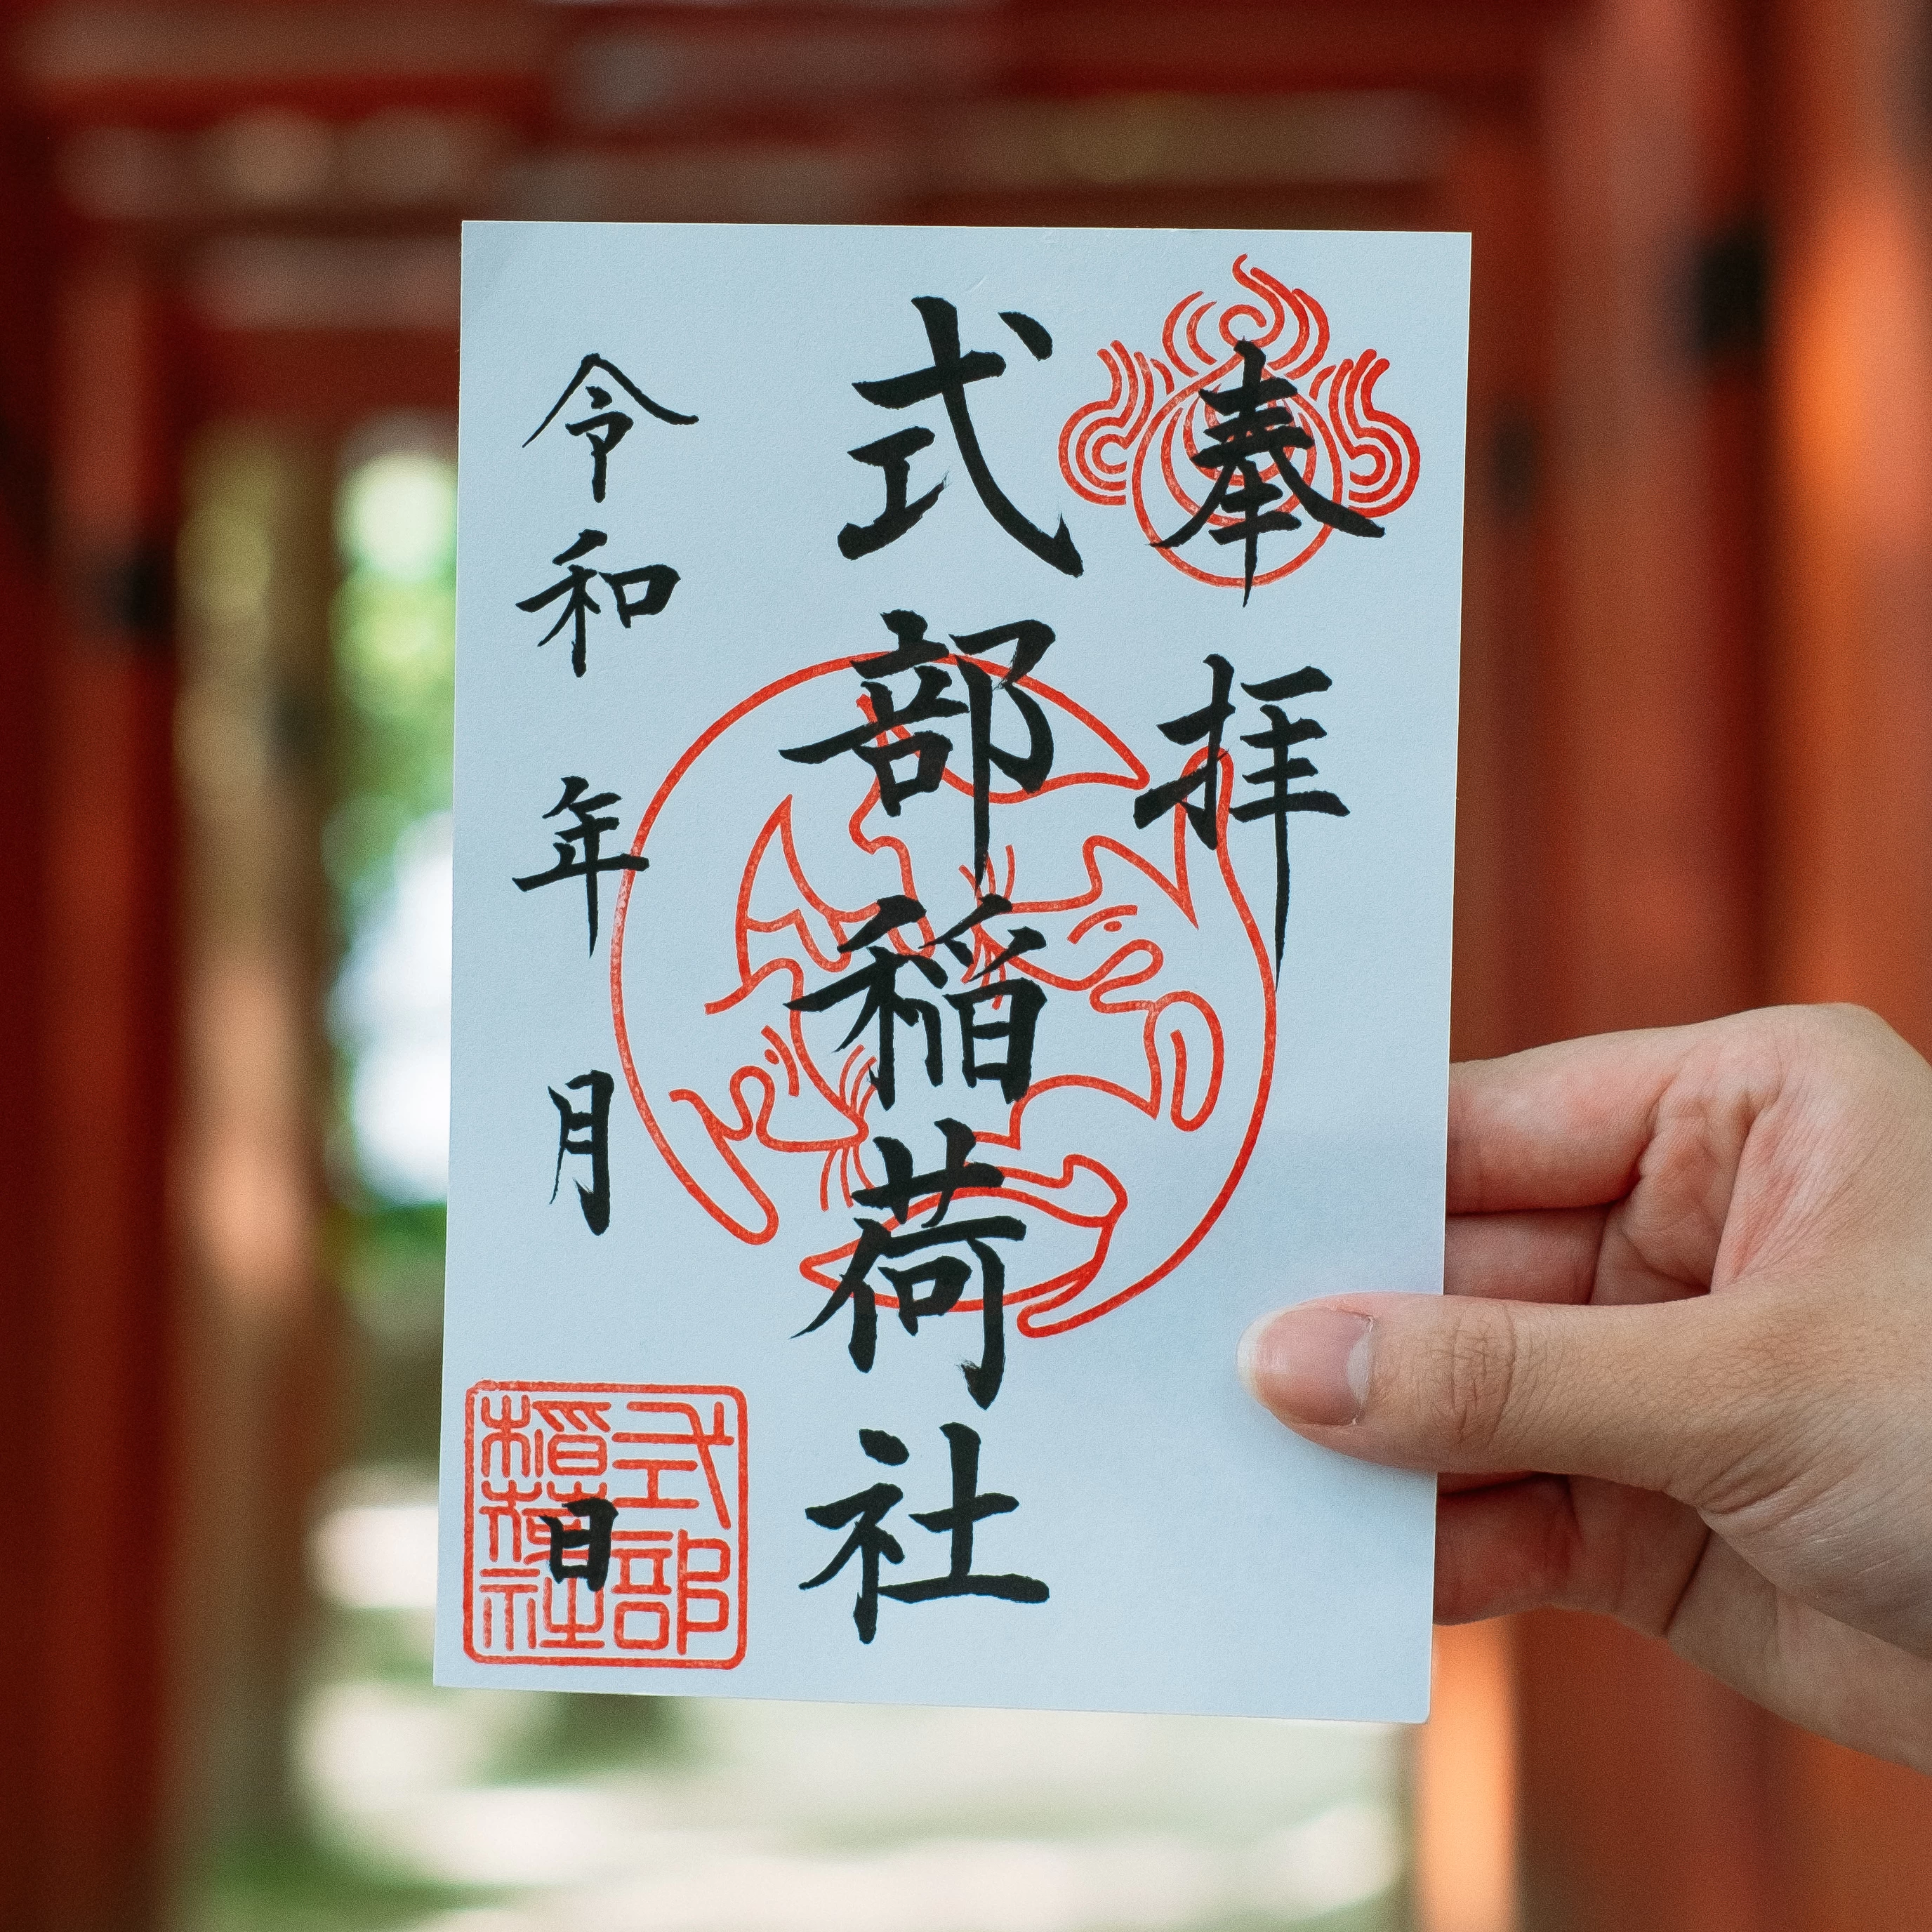 奉拝
式部稲荷社
令和 年 月 日
式部
稲荷社